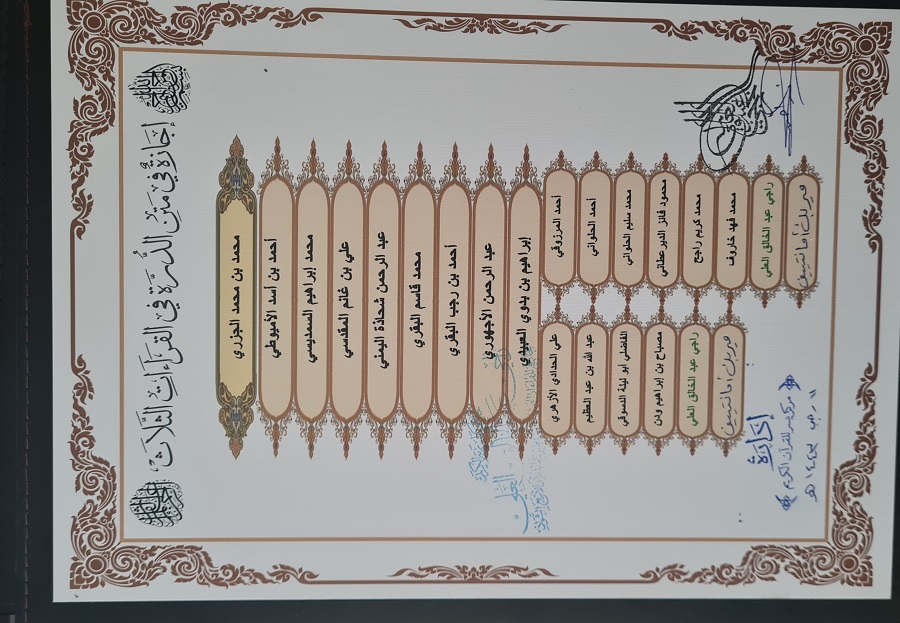 إجازة في متن الدرة في القراءات الثلاث
محمد بن محمد الجزري
أحمد بن أسد الأميوطي
محمد إبراهيم السمديسي
علي بن غانم المقدسي
عبد الرحمن شحاذة اليمني
محمد قاسم البقري
أحمد بن رجب البقري
عبد الرحمن الأجهوري
إبراهيم بن بدوي العبيدي
أحمد المرزوقي
أحمد الحلواني
محمد سليم الحلواني
محمود فائز الديرعطاني
محمد كريم راجح
محمد فهد خاروف
راجي عبد الخالق العلي
علي الحدادي الأزهري
عبد الله بن عبد العظيم
الفاضلي أبو ليلة الدسوقي
مصباح بن إبراهيم ودن
راجي عبد الخالق العلي
إجازة
للقرآن الكريم